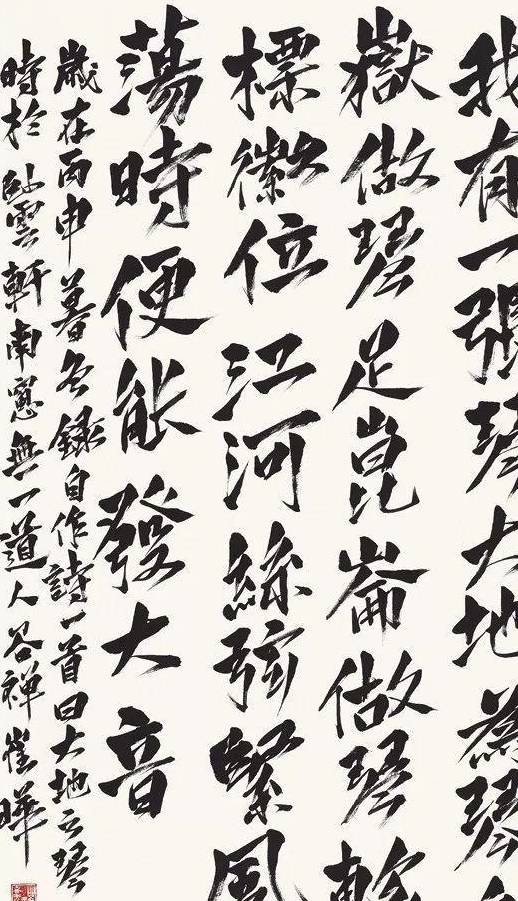 我有一張琴大地為琴
嶽做琴足崑崙做琴軫
標徽位江河絲弦緊風
蕩時便能發大音
歲在丙申暮冬錄自作詩一首曰大地之琴
時於卧雲軒南窻無一道人谷禪崔